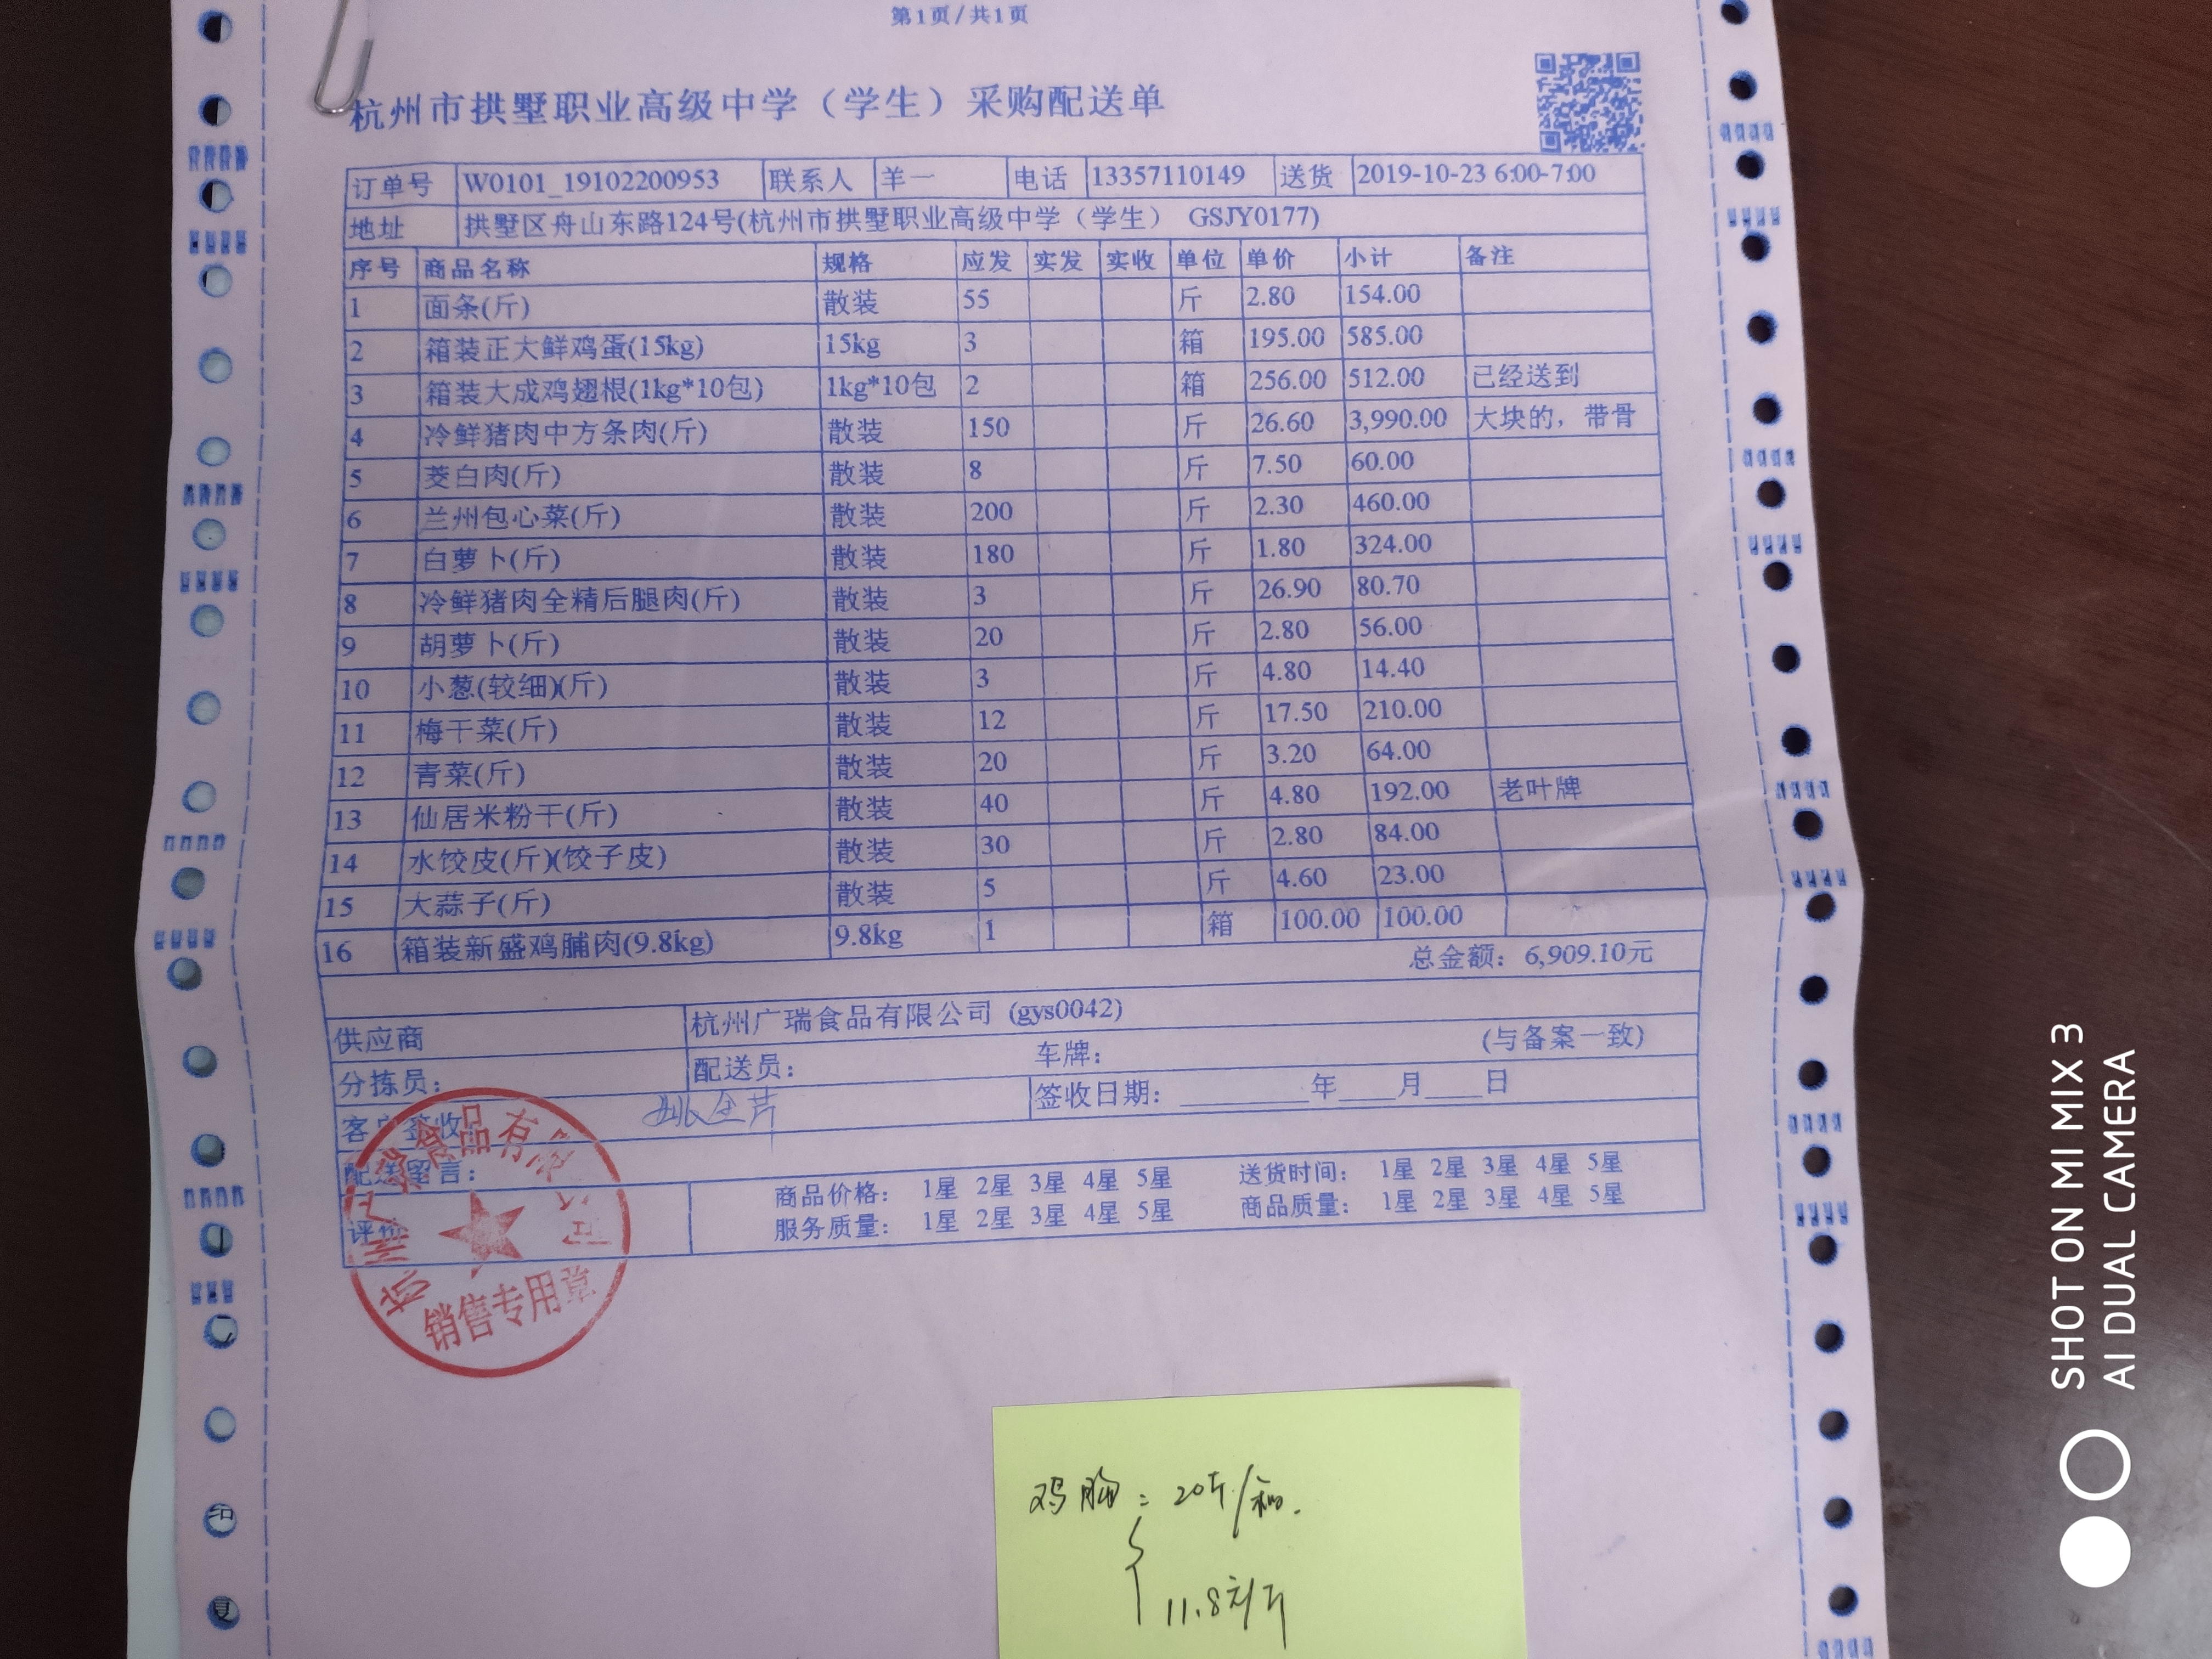 第1页/共1页
杭州市拱墅职业高级中学（学生）采购配送单
订单号 W0101_19102200953 联系人 羊一 电话 13357110149 送货 2019-10-23 6:00-7:00
地址 拱墅区舟山东路124号(杭州市拱墅职业高级中学（学生） GSJY0177)
序号 商品名称 规格 应发 实发 实收 单位 单价 小计 备注
1 面条(斤) 散装 55 斤 2.80 154.00
2 箱装正大鲜鸡蛋(15kg) 15kg 3 箱 195.00 585.00
3 箱装大成鸡翅根(1kg*10包) 1kg*10包 2 箱 256.00 512.00 已经送到
4 冷鲜猪肉中方条肉(斤) 散装 150 斤 26.60 3,990.00 大块的，带骨
5 茭白肉(斤) 散装 8 斤 7.50 60.00
6 兰州包心菜(斤) 散装 200 斤 2.30 460.00
7 白萝卜(斤) 散装 180 斤 1.80 324.00
8 冷鲜猪肉全精后腿肉(斤) 散装 3 斤 26.90 80.70
9 胡萝卜(斤) 散装 20 斤 2.80 56.00
10 小葱(较细)(斤) 散装 3 斤 4.80 14.40
11 梅干菜(斤) 散装 12 斤 17.50 210.00
12 青菜(斤) 散装 20 斤 3.20 64.00
13 仙居米粉干(斤) 散装 40 斤 4.80 192.00 老叶牌
14 水饺皮(斤)(饺子皮) 散装 30 斤 2.80 84.00
15 大蒜子(斤) 散装 5 斤 4.60 23.00
16 箱装新盛鸡脯肉(9.8kg) 9.8kg 1 箱 100.00 100.00
总金额：6,909.10元
供应商 杭州广瑞食品有限公司 (gys0042)
分拣员： 配送员： 车牌： (与备案一致)
客户签收： 签收日期：________年____月____日
配送留言：
评价 商品价格： 1星 2星 3星 4星 5星 送货时间： 1星 2星 3星 4星 5星
服务质量： 1星 2星 3星 4星 5星 商品质量： 1星 2星 3星 4星 5星
杭州广瑞食品有限公司
销售专用章
鸡胸：20斤/箱.
11.8元/斤
SHOT ON MI MIX 3
AI DUAL CAMERA